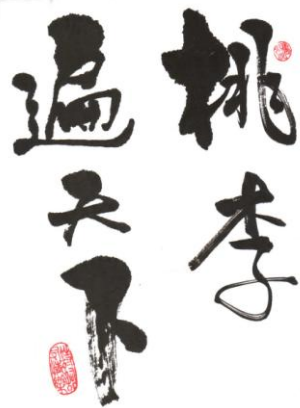 桃李
遍天下